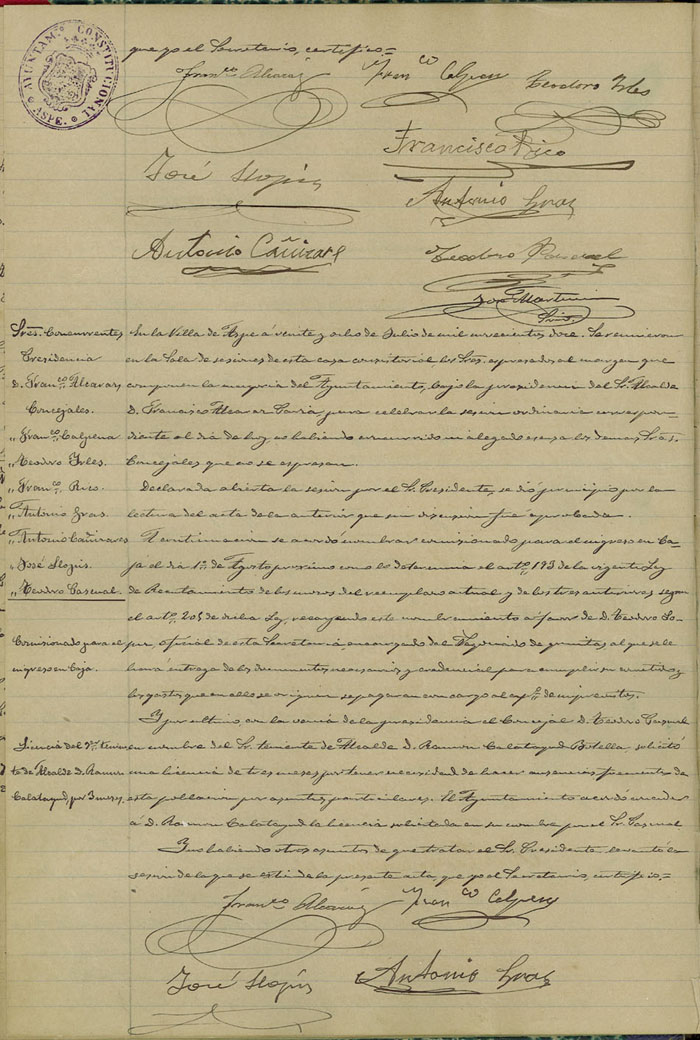 AYUNTAMTO CONSTITUCIONAL
ASPE.
que yo el Secretario, certifico=
Franco Alcaráz
Franco Calpena
Teodoro Irles
Francisco Rico
José Llopis
Antonio Gras
Antonio Cañizares
Teodoro Pascual
José Martinez
Srio.
Sres. Concurrentes
Presidencia
D. Franco Alcaraz
Concejales.
" Franco Calpena
" Teodoro Irles.
" Franco Rico
" Antonio Gras.
" Antonio Cañizares
" José Llopis.
" Teodoro Pascual.
En la Villa de Aspe á veinte y ocho de Julio de mil novecientos doce. Se reunieron
en la Sala de sesiones de esta casa consistorial los Sres. espresados al margen que
componen la mayoria del Ayuntamiento, bajo la presidencia del Sr. Alcalde
D. Francisco Alcaraz para celebrar la sesion ordinaria correspon-
diente al dia de hoy, no habiendo concurrido ni alegado escusa los demas Sres.
Concejales que no se espresan.
Declarada abierta la sesion por el Sr. Presidente, se dió principio por la
lectura del acta de la anterior que sin discusion fué aprobada.
A continuacion se acordó nombrar comisionado para el ingreso en Ca-
ja el dia 1º de Agosto proximo como lo determina el artº 193 de la vigente Ley
de Reclutamiento de los mozos del reemplazo actual y de los tres anteriores segun
el artº 205 de dicha Ley, recayendo este nombramiento á favor de D. Teodoro
Comisionado para el
ingreso en Caja.
oficial de esta Secretaria encargado del Negociado de quintas al que se le
hará entrega de los documentos necesarios y credencial para cumplir su cometido y
los gastos que en ello se originen se pagaran con cargo al de imprevistos.
Y por ultimo, con la venia de la presidencia el Concejal D. Teodoro Pascual
Licencia del
te de Alcalde D. Ramon
Calatayud, por 3 meses.
en nombre del Sr. teniente de Alcalde D. Ramon Calatayud Botella, solicitó
una licencia de tres meses por tener necesidad de hacer ausencias frecuentes de
esta poblacion por asuntos particulares. El Ayuntamiento acordó conceder
á D. Ramon Calatayud la licencia solicitada en su nombre por el Sr. Pascual
Y no habiendo otros asuntos de que tratar el Sr. Presidente, levantó la
sesion de la que se estiende la presente acta, que yo el Secretario, certifico.=
Franco Alcaráz
Franco Calpena
José Llopis
Antonio Gras